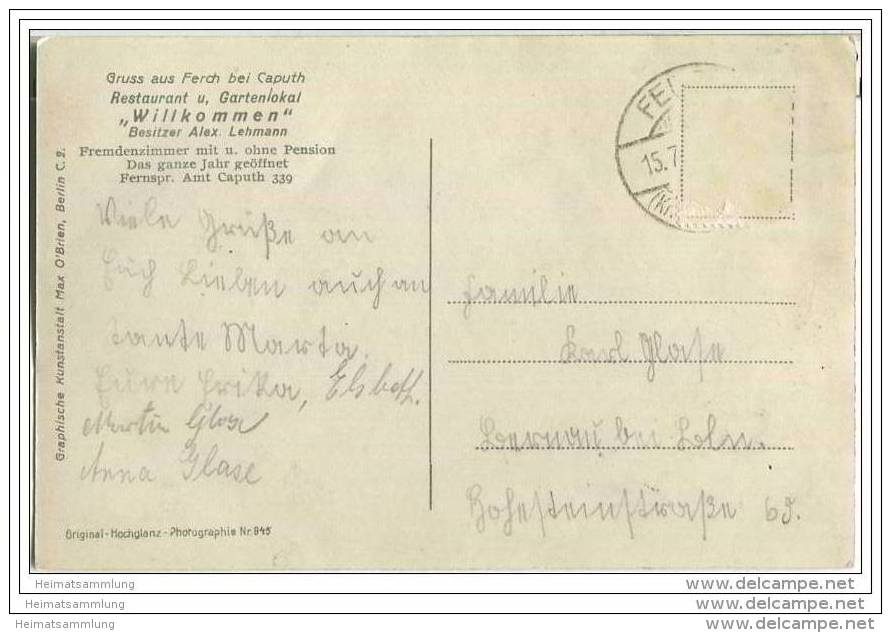 Gruss aus Ferch bei Caputh
Restaurant u. Gartenlokal
„Willkommen"
Besitzer Alex. Lehmann
Fremdenzimmer mit u. ohne Pension
Das ganze Jahr geöffnet
Fernspr. Amt Caputh 339
Viele Grüße an
Euch Lieben auch an
Tante Marta.
Eure Erika, Elsbeth.
Martin Glase
Anna Glase
Original-Hochglanz-Photographie Nr. 945
Graphische Kunstanstalt Max O'Brien, Berlin C. 2.
15.7
Familie
Karl Glase
Bernau bei Bln.
Hohesteinstraße
Heimatsammlung
www.delcampe.net
Heimatsammlung
www.delcampe.net
Heimatsammlung
www.delcampe.net